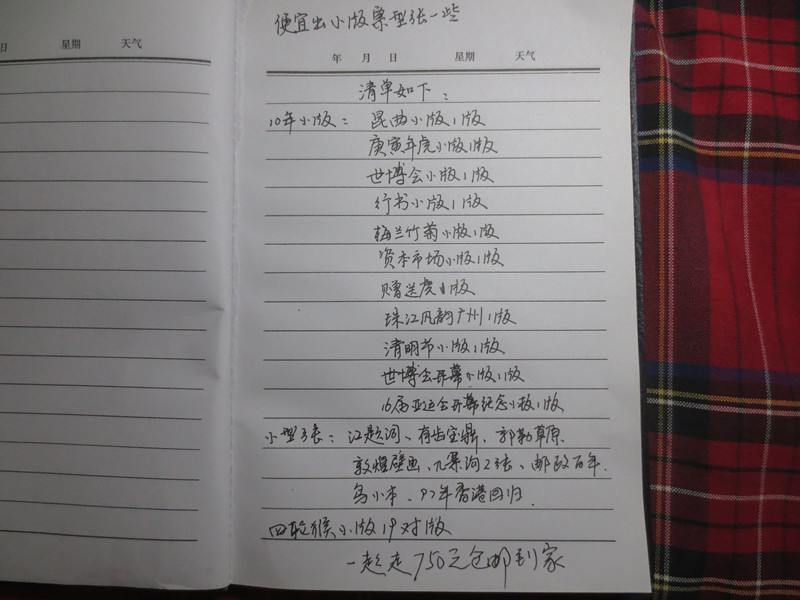 便宜出小版票型张一些
日 星期 天气
年 月 日 星期 天气
清单如下：
10年小版：昆曲小版1版
庚寅年虎小版1版
世博会小版1版
行书小版1版
梅兰竹菊小版1版
资本市场小版1版
赠送虎小1版
珠江风韵广州1版
清明节小版1版
世博会开幕小版1版
16届亚运会开幕纪念小板1版
小型张：江题词、有齿宝鼎、郭勒草原
敦煌壁画、元宵2张、邮政百年.
鸟小本、97年香港回归.
四轮猴小版19对版
一起走750元包邮到家